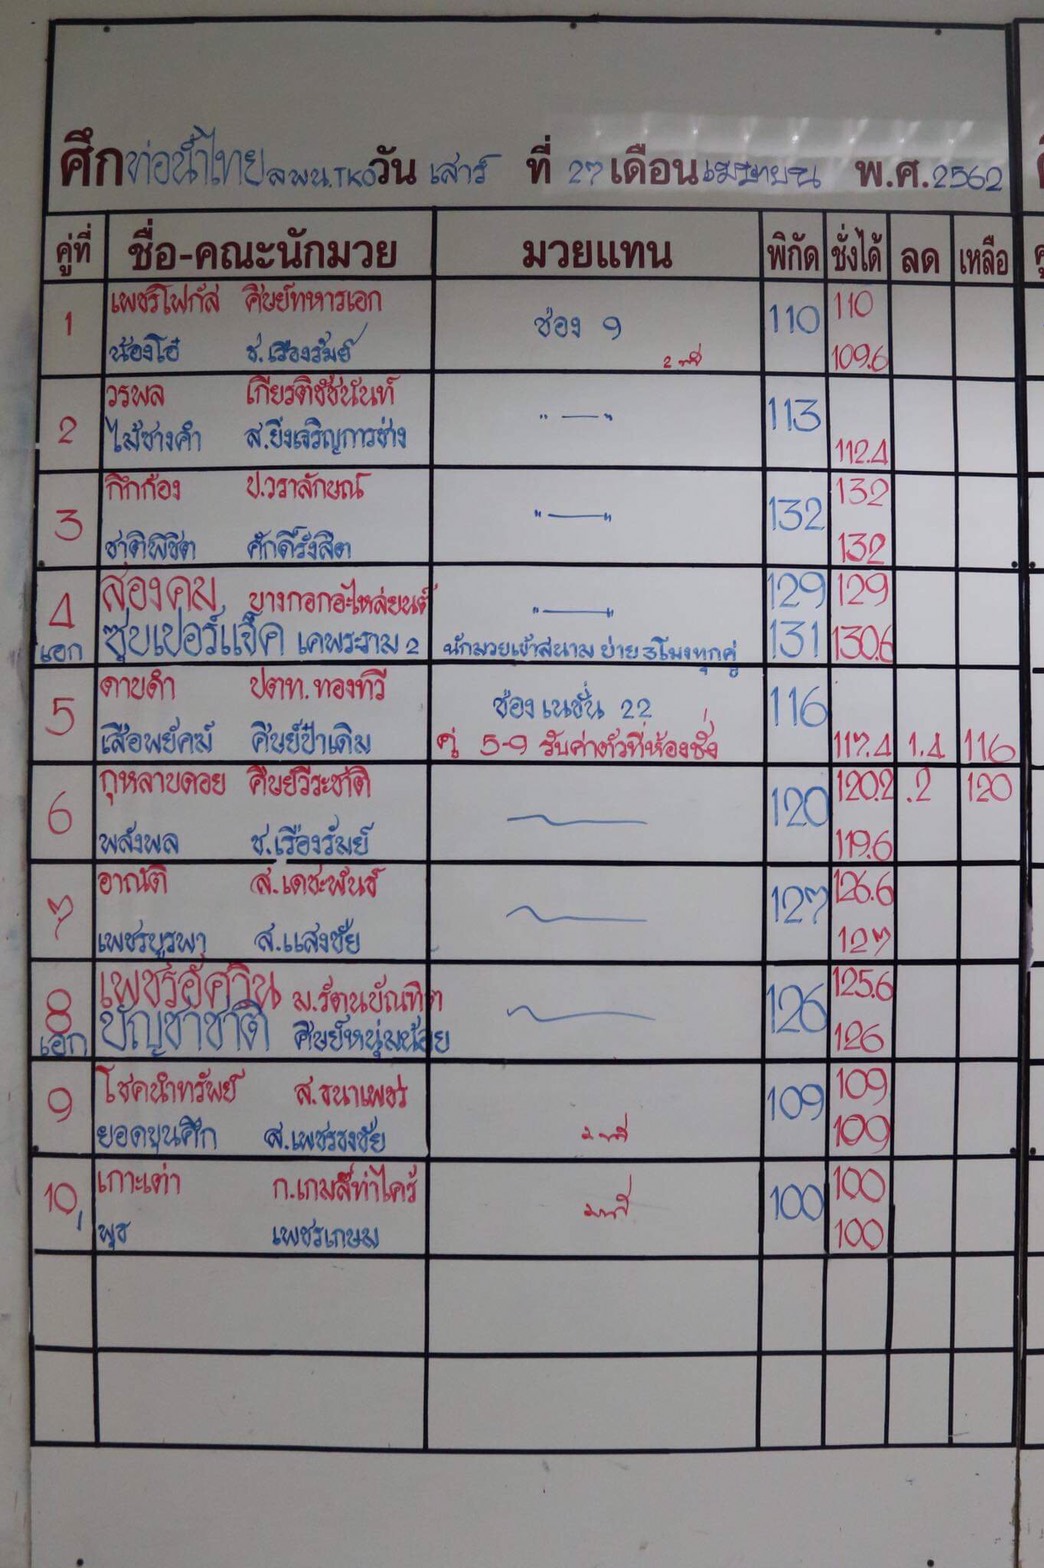 ศึกท่อน้ำไทยลุมพินี TKO วัน เสาร์ ที่ 27 เดือน เมษายน พ.ศ. 2562
คู่ที่ ชื่อ-คณะนักมวย มวยแทน พิกัด ชั่งได้ ลด เหลือ
เพชรโฟกัส ศิษย์ทหารเอก 110
1 ช่อง 9 110
น้องโอ๋ ช.เรืองรัมย์ 109.6
วรพล เกียรติชัชนันท์
2 " — " 113
ไม้ซางคำ ส.ยิ่งเจริญการช่าง 112.4
กึกก้อง ป.วราลักษณ์ 132
3 " — " 132
ชาติพิชิต ศักดิ์รังสิต 132
4 สองคม บางกอกอะไหล่ยนต์ " — " 129 129
เอก ซุปเปอร์แจ็ค เคพระราม 2 นักมวยเข้าสนาม บ่าย 3 โมงทุกคู่ 131 130.6
ดาบดำ ปตท.ทองทวี ช่อง เนชั่น 22
5 116
เสือพยัคฆ์ ศิษย์ป๋าเดิม คู่ 5-9 รับค่าตัวที่ห้องชั่ง 117.4 1.4 116
กุหลาบดอย ศิษย์วีระชาติ 120.2 .2 120
6 120
พลังพล ช.เรืองรัมย์ 119.6
อาณัติ ส.เดชะพันธ์ 126.6
7 127
เพชรบูรพา ส.แสงชัย 127
8 เพชรอัศวิน ม.รัตนบัณฑิต 126 125.6
เอก บัญชาชาติ ศิษย์หนุ่มน้อย 126
โชคนำทรัพย์ ส.ธนาเพชร 109
9 109
ยอดขุนศึก ส.เพชรธงชัย 109
เกาะเต่า ก.เกมส์ท่าไคร้ 100
10 100
พุธ เพชรเกษม 100